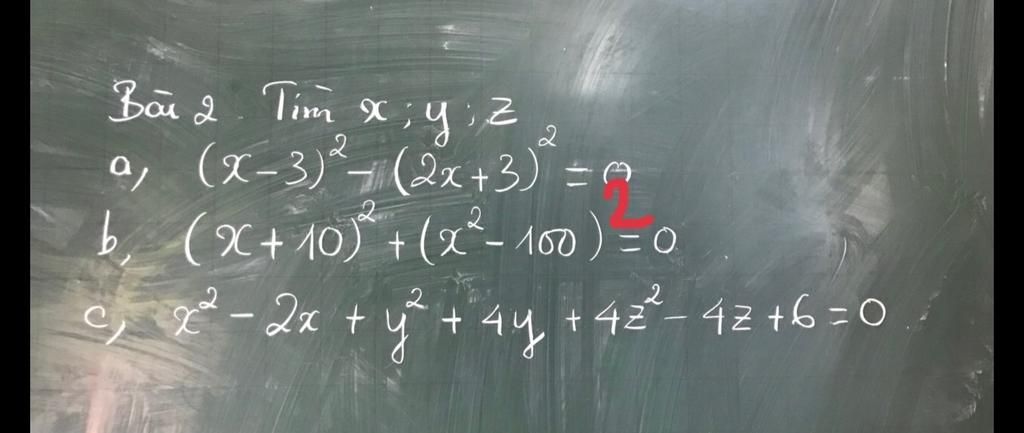 Bài 2. Tìm x; y; z
a, (x-3)² - (2x+3)² = 0
b, (x+10)² + (x² - 100)² = 0
c, x² - 2x + y² + 4y + 4z² - 4z + 6 = 0